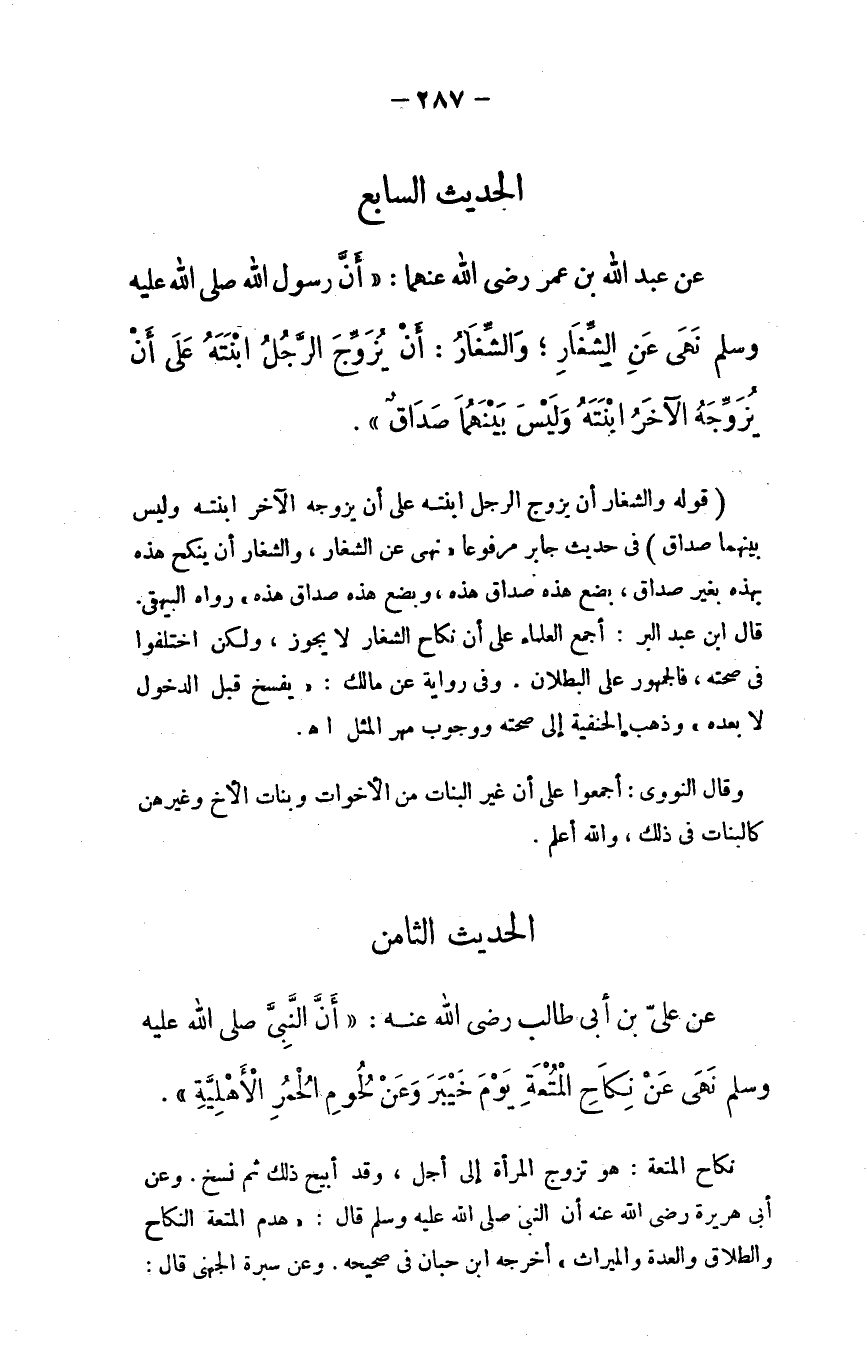 — ٢٨٧ —
الحديث السابع
عن عبد الله بن عمر رضى الله عنهما : « أَنَّ رسول الله صلى الله عليه
وسلم نَهَى عَنِ الشِّغَارِ ؛ وَالشِّغَارُ : أَنْ يُزَوِّجَ الرَّجُلُ ابْنَتَهُ عَلَى أَنْ
يُزَوِّجَهُ الآخَرُ ابْنَتَهُ وَلَيْسَ بَيْنَهُمَا صَدَاقٌ » .
( قوله والشغار أن يزوج الرجل ابنتـه على أن يزوجه الآخر ابنتـه وليس
بينهما صداق ) فى حديث جابر مرفوعا « نهى عن الشغار ، والشغار أن ينكح هذه
بهذه بغير صداق ، بضع هذه صداق هذه ، وبضع هذه صداق هذه » رواه البيهقى.
قال ابن عبد البر : أجمع العلماء على أن نكاح الشغار لا يجوز ، ولكن اختلفوا
فى صحته ، فالجمهور على البطلان . وفى رواية عن مالك : « يفسخ قبل الدخول
لا بعده » وذهب الحنفية إلى صحته ووجوب مهر المثل ا ه .
وقال النووى : أجمعوا على أن غير البنات من الأخوات وبنات الأخ وغيرهن
كالبنات فى ذلك ، والله أعلم .
الحديث الثامن
عن علىّ بن أبى طالب رضى الله عنـه : « أَنَّ النَّبِيَّ صلى الله عليه
وسلم نَهَى عَنْ نِكَاحِ الْمُتْعَةِ يَوْمَ خَيْبَرَ وَعَنْ لُحُومِ الْحُمُرِ الْأَهْلِيَّةِ » .
نكاح المتعة : هو تزوج المرأة إلى أجل ، وقد أبيح ذلك ثم نسخ . وعن
أبى هريرة رضى الله عنه أن النبى صلى الله عليه وسلم قال : « هدم المتعة النكاح
والطلاق والعدة والميراث » أخرجه ابن حبان فى صحيحه . وعن سبرة الجهنى قال :